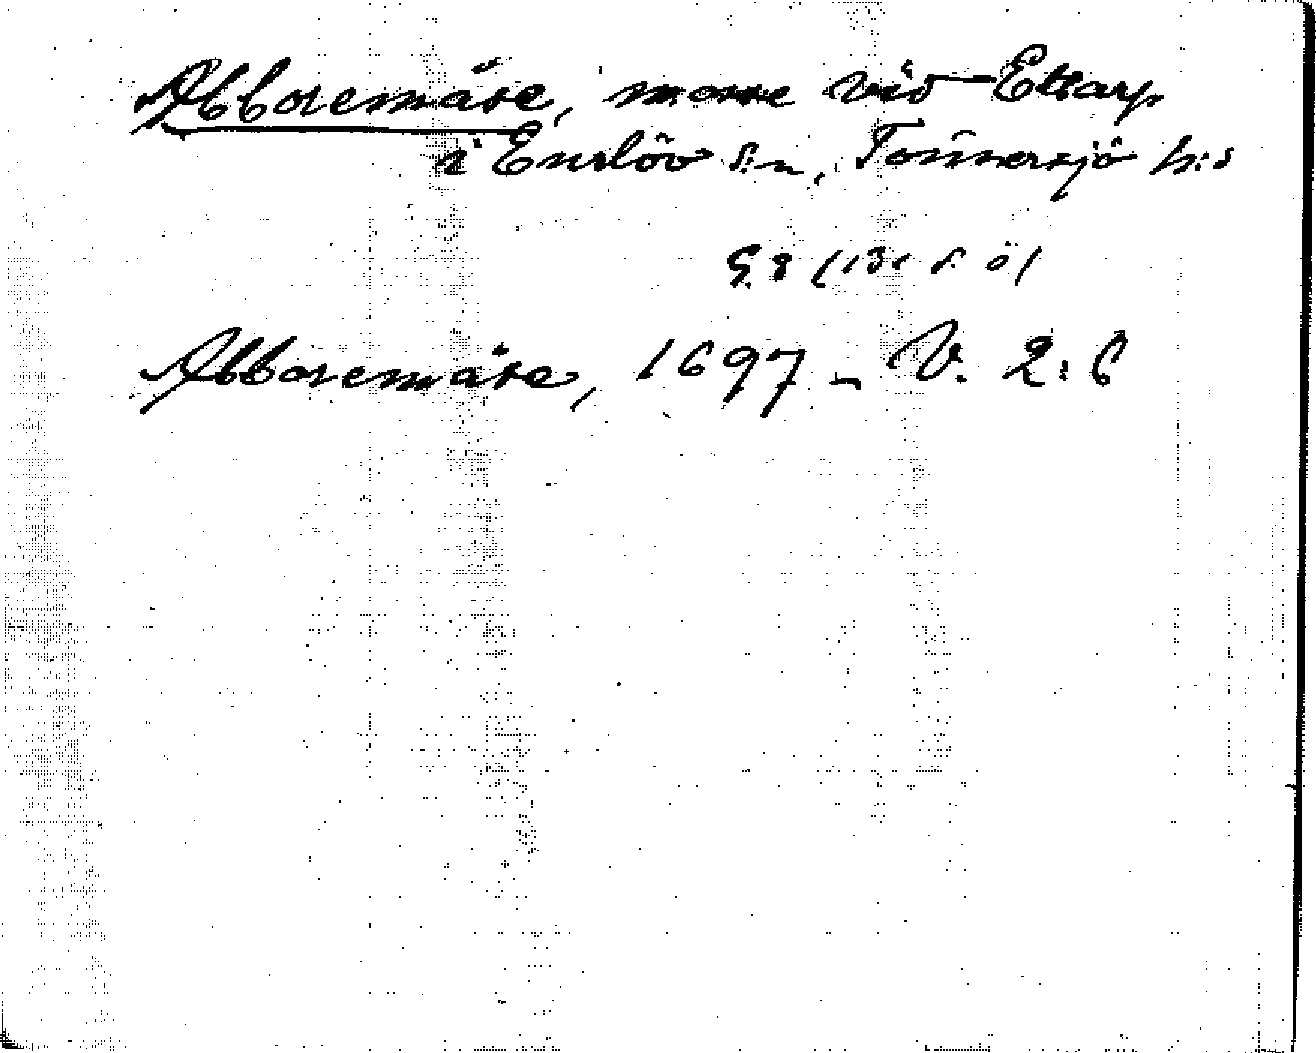 Abboremåse, mosse vid Ettarp
i Enslöv s:n, Tönnersjö h:s
G. 8
Abboremåse, 1697 - V. 2:6